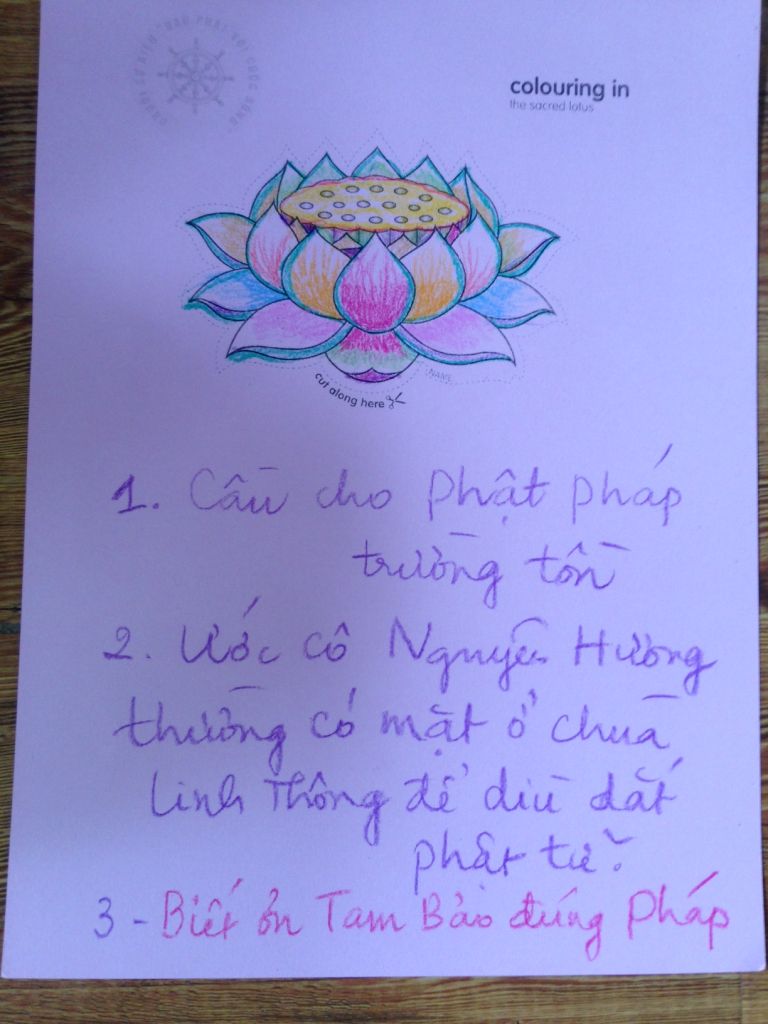 "ĐẠO PHẬT VỚI CUỘC SỐNG"
colouring in
the sacred lotus
NAME
cut along here
1. Cầu cho Phật pháp
trường tồn
2. Ước cô Nguyên Hương
thường có mặt ở chùa
Linh Thông để dìu dắt
phật tử.
3 - Biết ơn Tam Bảo đúng Pháp